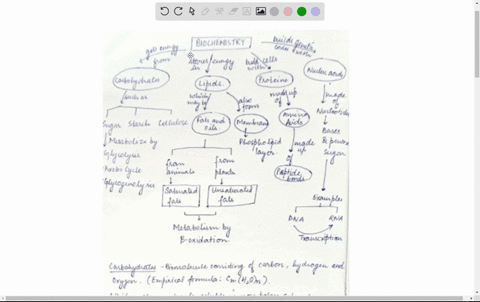 BIOCHEMISTRY
get energy from
stores energy in
build cells with
builds genetic code with
Carbohydrates
Lipids
Proteins
Nucleic acids
such as
which may be
also form
made up of
made of
Sugar Starch Cellulose
Fats and oils
Membrane
Amino Acids
Nucleotides
Metabolize by
Glycolysis
Krebs Cycle
Glycogenolysis
Phospholipid layer
made up of
Peptide bonds
Bases
Sugar
from animals
from plants
Saturated fats
Unsaturated fats
Examples
DNA
RNA
Transcription
Metabolism by
B-oxidation
Carbohydrates - Biomolecule consisting of carbon, hydrogen and
Oxygen. (Empirical formula: Cm(H2O)n).